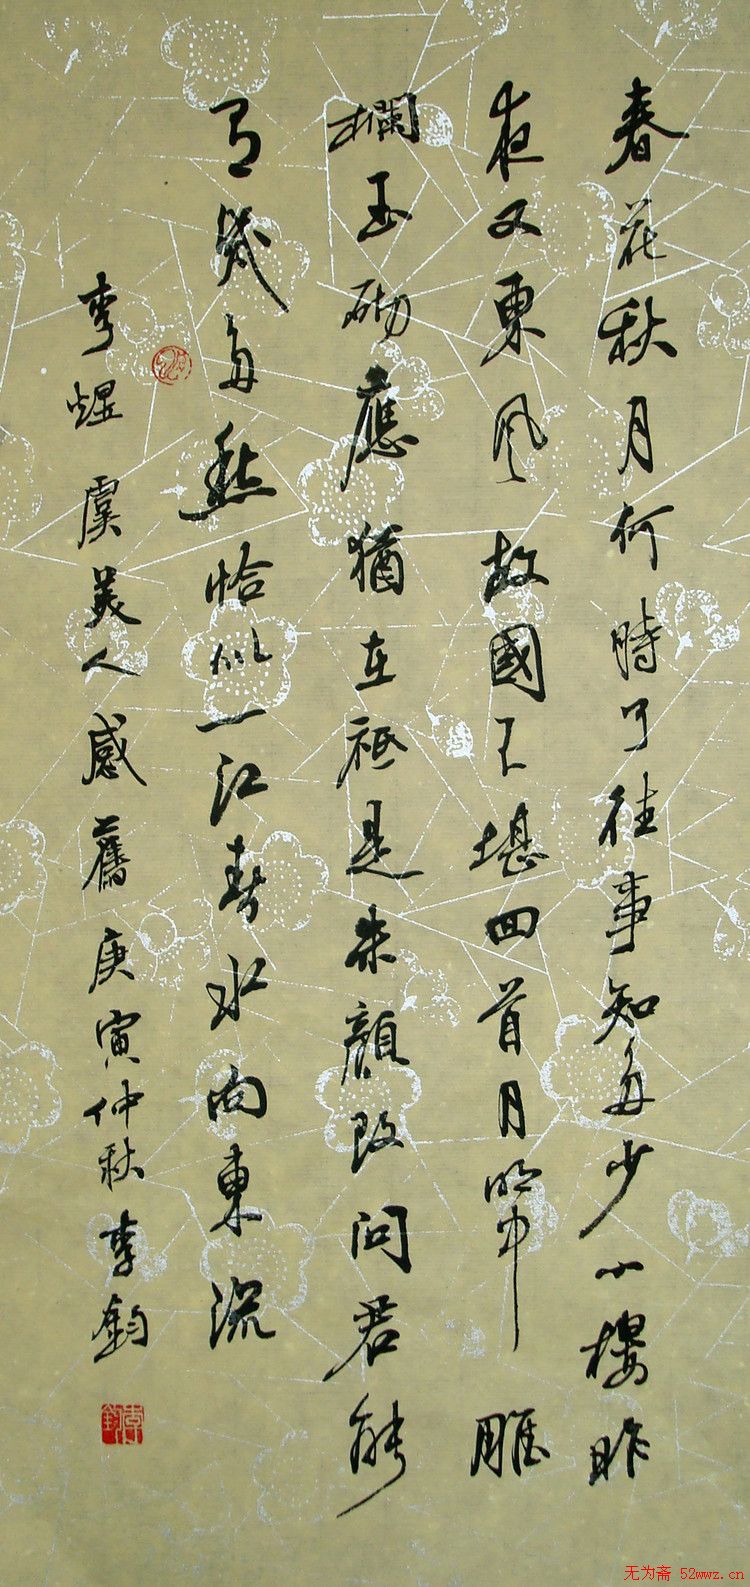 春花秋月何時了往事知多少小樓昨
夜又東風故國不堪回首月明中雕
欄玉砌應猶在祗是朱顏改問君能
有幾多愁恰似一江春水向東流
李煜虞美人感舊庚寅仲秋李鈞
李鈞
无为斋 52wwz.cn